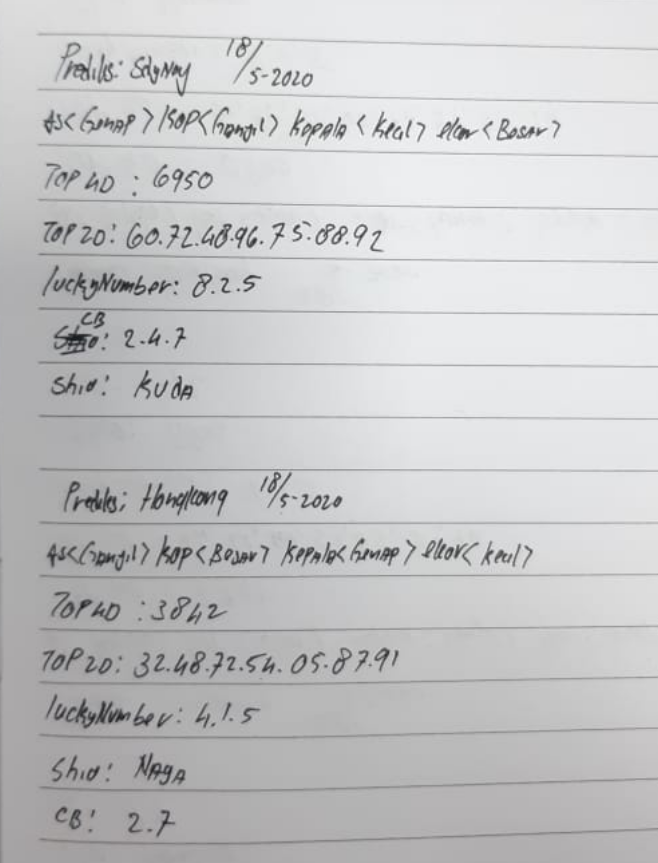 Prediksi Sdyney 18/5-2020
AS<Genap> KOP<Ganjil> Kepala <Kecil> ekor <Besar>
TOP 4D : 6950
TOP 2D: 60.72.48.96.75.88.92
luckyNumber: 8.2.5
CB: 2.4.7
Shio: KUDA
Prediksi Hongkong 18/5-2020
AS<Ganjil> KOP<Besar> Kepala<Genap> ekor<Kecil>
TOP 4D : 3842
TOP 2D: 32.48.72.54.05.87.91
luckyNumber: 4.1.5
Shio: NAGA
CB: 2.7